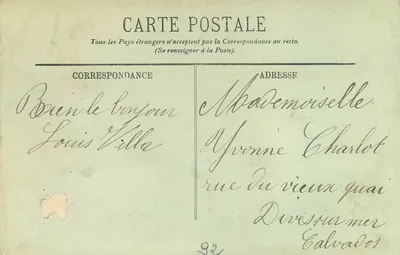 CARTE POSTALE
Tous les Pays étrangers n'acceptent pas la Correspondance au recto.
(Se renseigner à la Poste).
CORRESPONDANCE
Bien le bonjour
Louis Villa
ADRESSE
Mademoiselle
Yvonne Charlot
rue du vieux quai
Dives sur mer
Calvados
92